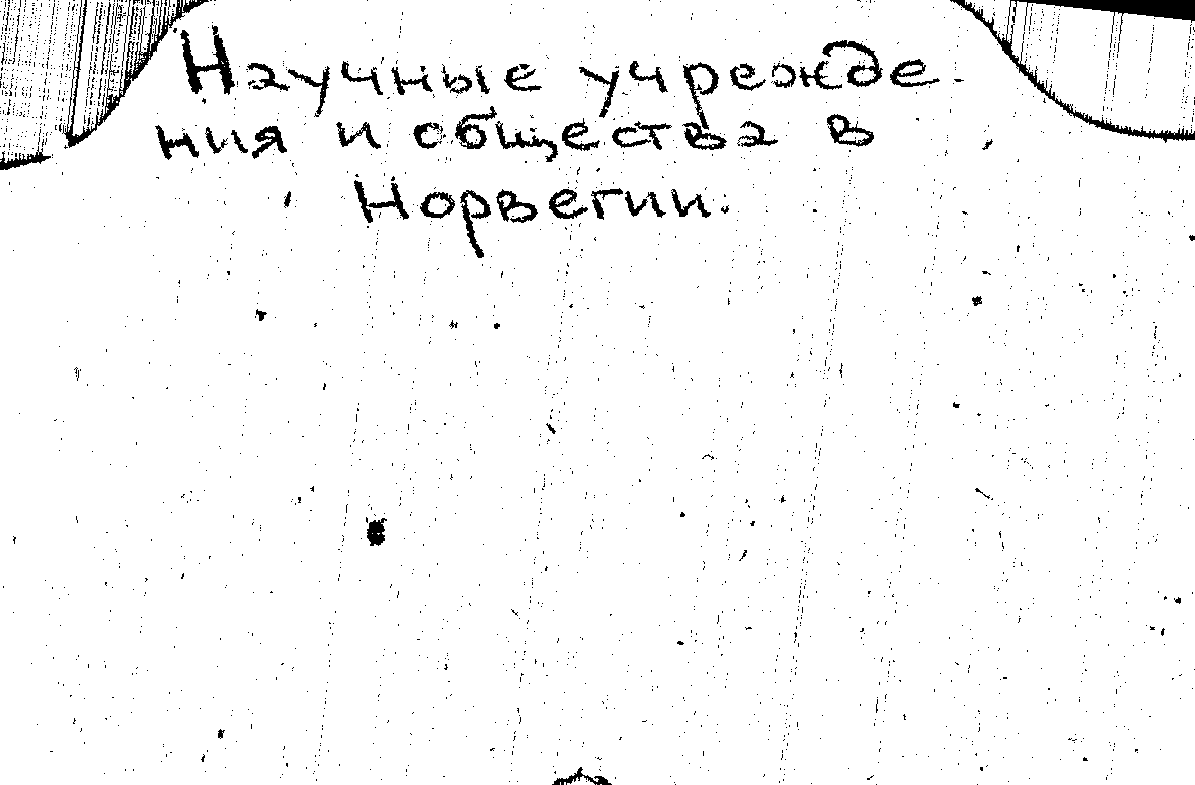 Научные учрежде-
ния и общества в
Норвегии.